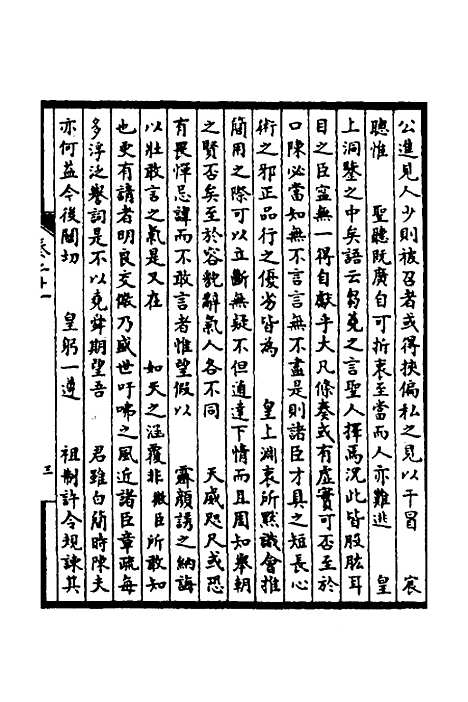 公進見人少則被召者或得挾偏私之見以干冒　宸
聰惟　聖聽既廣自可折衷至當而人亦難逃　皇
上洞鑒之中矣語云芻蕘之言聖人擇焉況此皆股肱耳
目之臣寍無一得自獻乎大凡條奏或有虛實可否至於
口陳必當知無不言言無不盡是則諸臣才具之短長心
術之邪正品行之優劣皆為　皇上淵衷所黙識會推
簡用之際可以立斷無疑不但通達下情而且周知舉朝
之賢否矣至於容貌辭氣人各不同　天威咫尺或恐
有畏憚忌諱而不敢言者惟望假以　霽顏誘之納誨
以壯敢言之氣是又在　如天之涵覆非微臣所敢知
也更有請者明良交儆乃盛世吁咈之風近諸臣章疏每
多浮泛譽詞是不以堯舜期望吾　君雖白簡時陳夫
亦何益今後關切　皇躬一遵　祖制許令規諫其
卷之十一
三